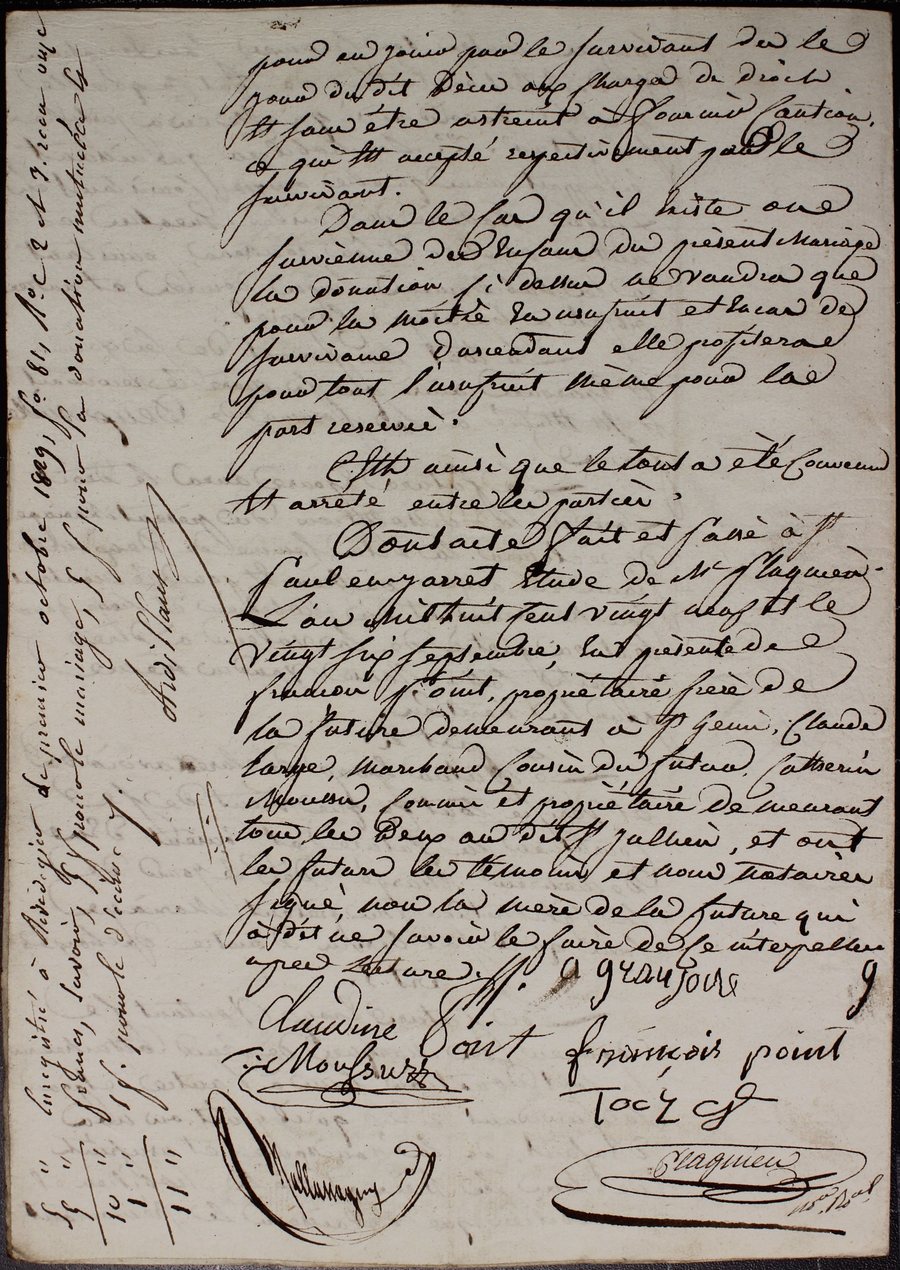 pour en jouir par le survivant dès le
jour du dit Décès aux Charges de droit
Et sans être astreint à fournir Caution,
ce qui Est accepté respectivement par le
survivant.
Dans le Cas qu'il Existe ou
survienne des Enfans du présent Mariage
la donation si dessus ne vaudra que
pour la moitié En usufruit et En cas de
survivance d'ascendans elle profitera
pour tout l'usufruit même pour la
part reservée.
Est ainsi que le tout a été Convenu
Et arrêté entre les parties.
Dont acte fait et passé à St
Paul en jarret Etude de Me Flaquieu
L'an Mil huit cent vingt neuf et le
vingt six septembre, En présence de
françois point, propriétaire frère de
la future demeurant à St Genis, Claude
large, marchand Cousin du futur,
Commis et propriétaire demeurant
tous les Deux au dit St Jullien, et ont
les futurs les témoins et nous notaires
signé, non la mère de la future qui
à dit ne savoir le faire de Ce interpellée
après lecture.
Claudine Point
françois point
no.re Roal
Enregistré à Rivedegier le premier octobre 1829, fo. 81, Ro. C. 2 et 3. reçu onze
francs, savoir, 5 f pour le mariage, 5 f pour la donation mutuelle et
1 f. pour le décime
5 "
5 "
10 "
1 "
11 "